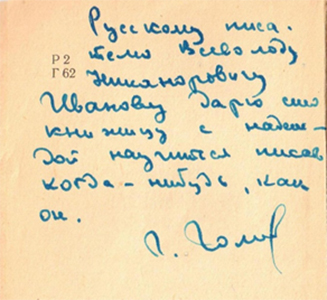 Русскому писа-
телю Всеволоду
Р 2
Г 62
Никаноровичу
Иванову дарю сию
книжицу с надеж-
дой научиться писать
когда-нибудь, как
он.
Г.